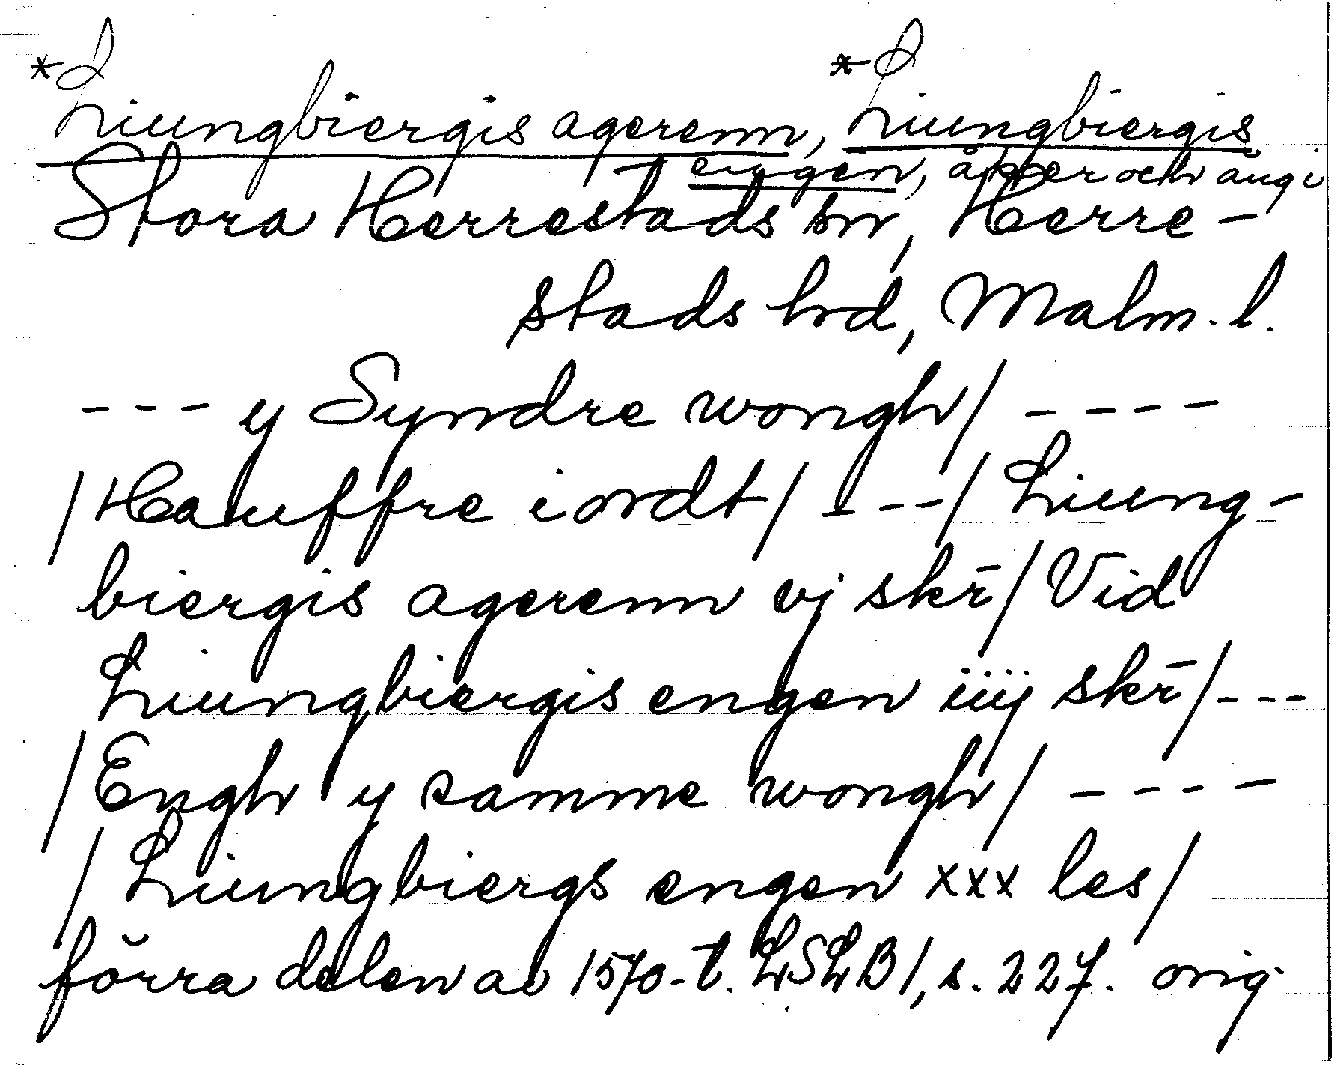 *Liungbiergis agerenn, *Liungbiergis
engen, åker och äng i
Stora Herrestads sn, Herre-
stads hd, Malm. l.
--- y Syndre wongh/ ----
/Hauffre iordt/ ---/ Liung-
biergis agerenn vj skr̄/ Vid
Liungbiergis engen iiij skr̄/---
/Engh y samme wongh/ ----
/Liungbiergs engen xxx les/
förra delen av 1570-t. LSLB 1, s. 227. orig.